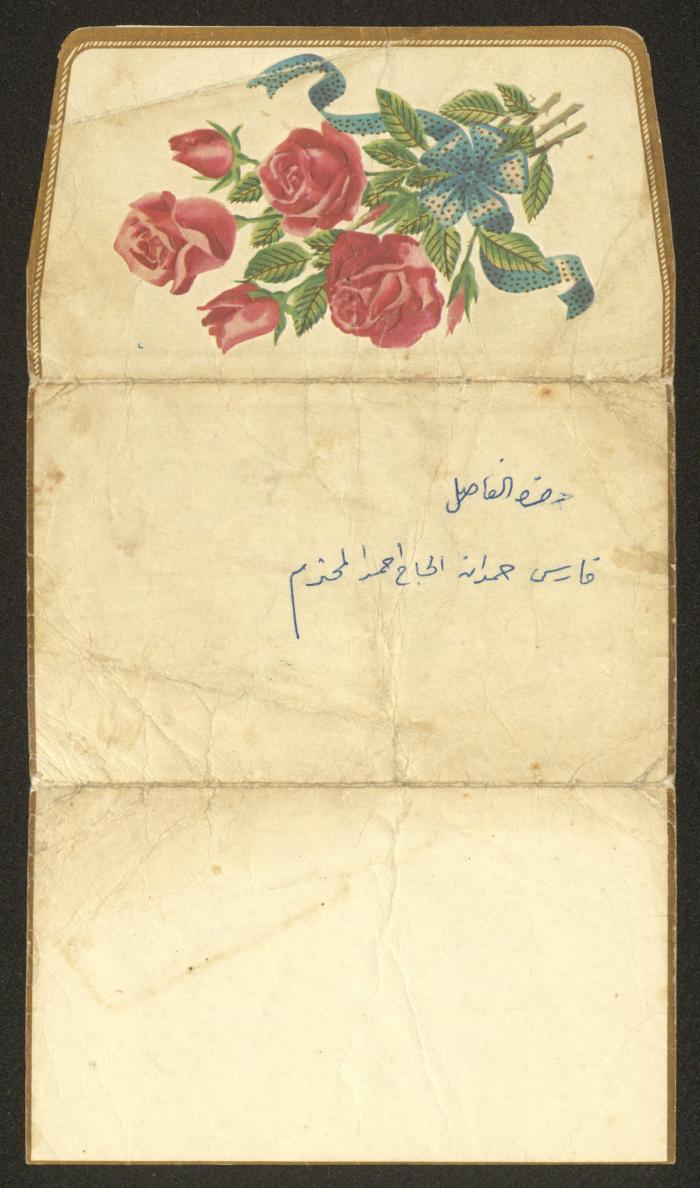 حضرة الفاضل
فارس حمدان الحاج احمد المحترم